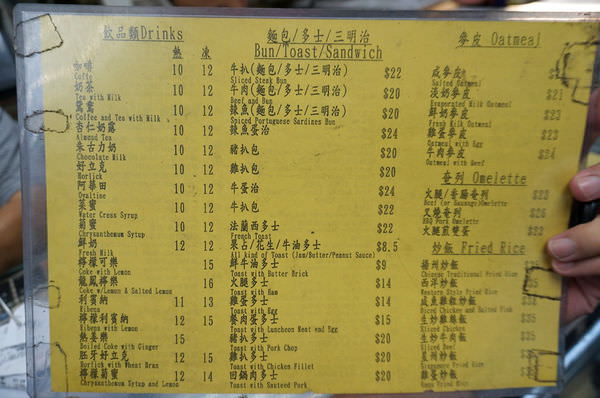 飲品類Drinks
熱 凍
咖啡 10 12
Coffe
奶茶 10 12
Tea with Milk
鴛鴦 10 12
Coffee and Tea with Milk
杏仁奶露 10 12
Almond Tea
朱古力奶 10 12
Chocolate Milk
好立克 10 12
Horlick
阿華田 10 12
Ovaltine
菜蜜 10 12
Water Cress Syrup
菊蜜 10 12
Chrysanthemum Syrup
鮮奶 12 12
Fresh Milk
檸檬可樂 15
Coke with Lemon
龍鳳檸樂 16
Coke w/Lemon & Salted Lemon
利賓納 11 13
Ribena
檸檬利賓納 12 15
Ribena with Lemon
熱姜樂 15
Boiled Coke with Ginger
胚牙好立克 12 15
Horlick with Wheat Bran
檸檬菊蜜 12 14
Chrysanthemum Syrup and Lemon
麵包/多士/三明治
Bun/Toast/Sandwich
牛扒(麵包/多士/三明治) $22
Sliced Steak Bun
牛肉(麵包/多士/三明治) $20
Beef and Bun
辣魚(麵包/多士/三明治) $20
Spiced Portuguese Sardines Bun
辣魚蛋治 $24
豬扒包 $20
雞扒包 $20
牛蛋治 $24
牛扒包 $22
法蘭西多士 $22
French Toast
果占/花生/牛油多士 $8.5
All kind of Toast (Jam/Butter/Peanut Sauce)
鮮牛油多士 $9
Toast with Butter Brick
火腿多士 $14
Toast with Ham
雞蛋多士 $14
Toast with Egg
餐肉蛋多士 $15
Toast with Luncheon Meat and Egg
豬扒多士 $20
Toast with Pork Chop
雞扒多士 $20
Toast with Chicken Fillet
回鍋肉多士 $20
Toast with Sauteed Pork
麥皮 Oatmeal
咸麥皮
Salted Oatmeal
淡奶麥皮 $21
Evaporated Milk Oatmeal
鮮奶麥皮 $23
Fresh Milk Oatmeal
雞蛋麥皮 $23
Oatmeal with Egg
牛肉麥皮 $24
Oatmeal with Beef
奄列 Omelette
火腿/香腸奄列 $23
Beef (or Sausage)Omelette
叉燒奄列 $26
BBQ Pork Omelette
火腿煎雙蛋 $20
炒飯 Fried Rice
揚州炒飯
Chinese Traditional Fried Rice
西洋炒飯
Western Style Fried Rice
咸魚雞粒炒飯
Diced Chicken and Salted Fish
生炒雞飯 $35
Sliced Chicken
生炒牛肉飯 $35
Sliced Beef
星州炒飯
Singapore Fried Rice
雞蛋炒飯
Eggs Fried Rice